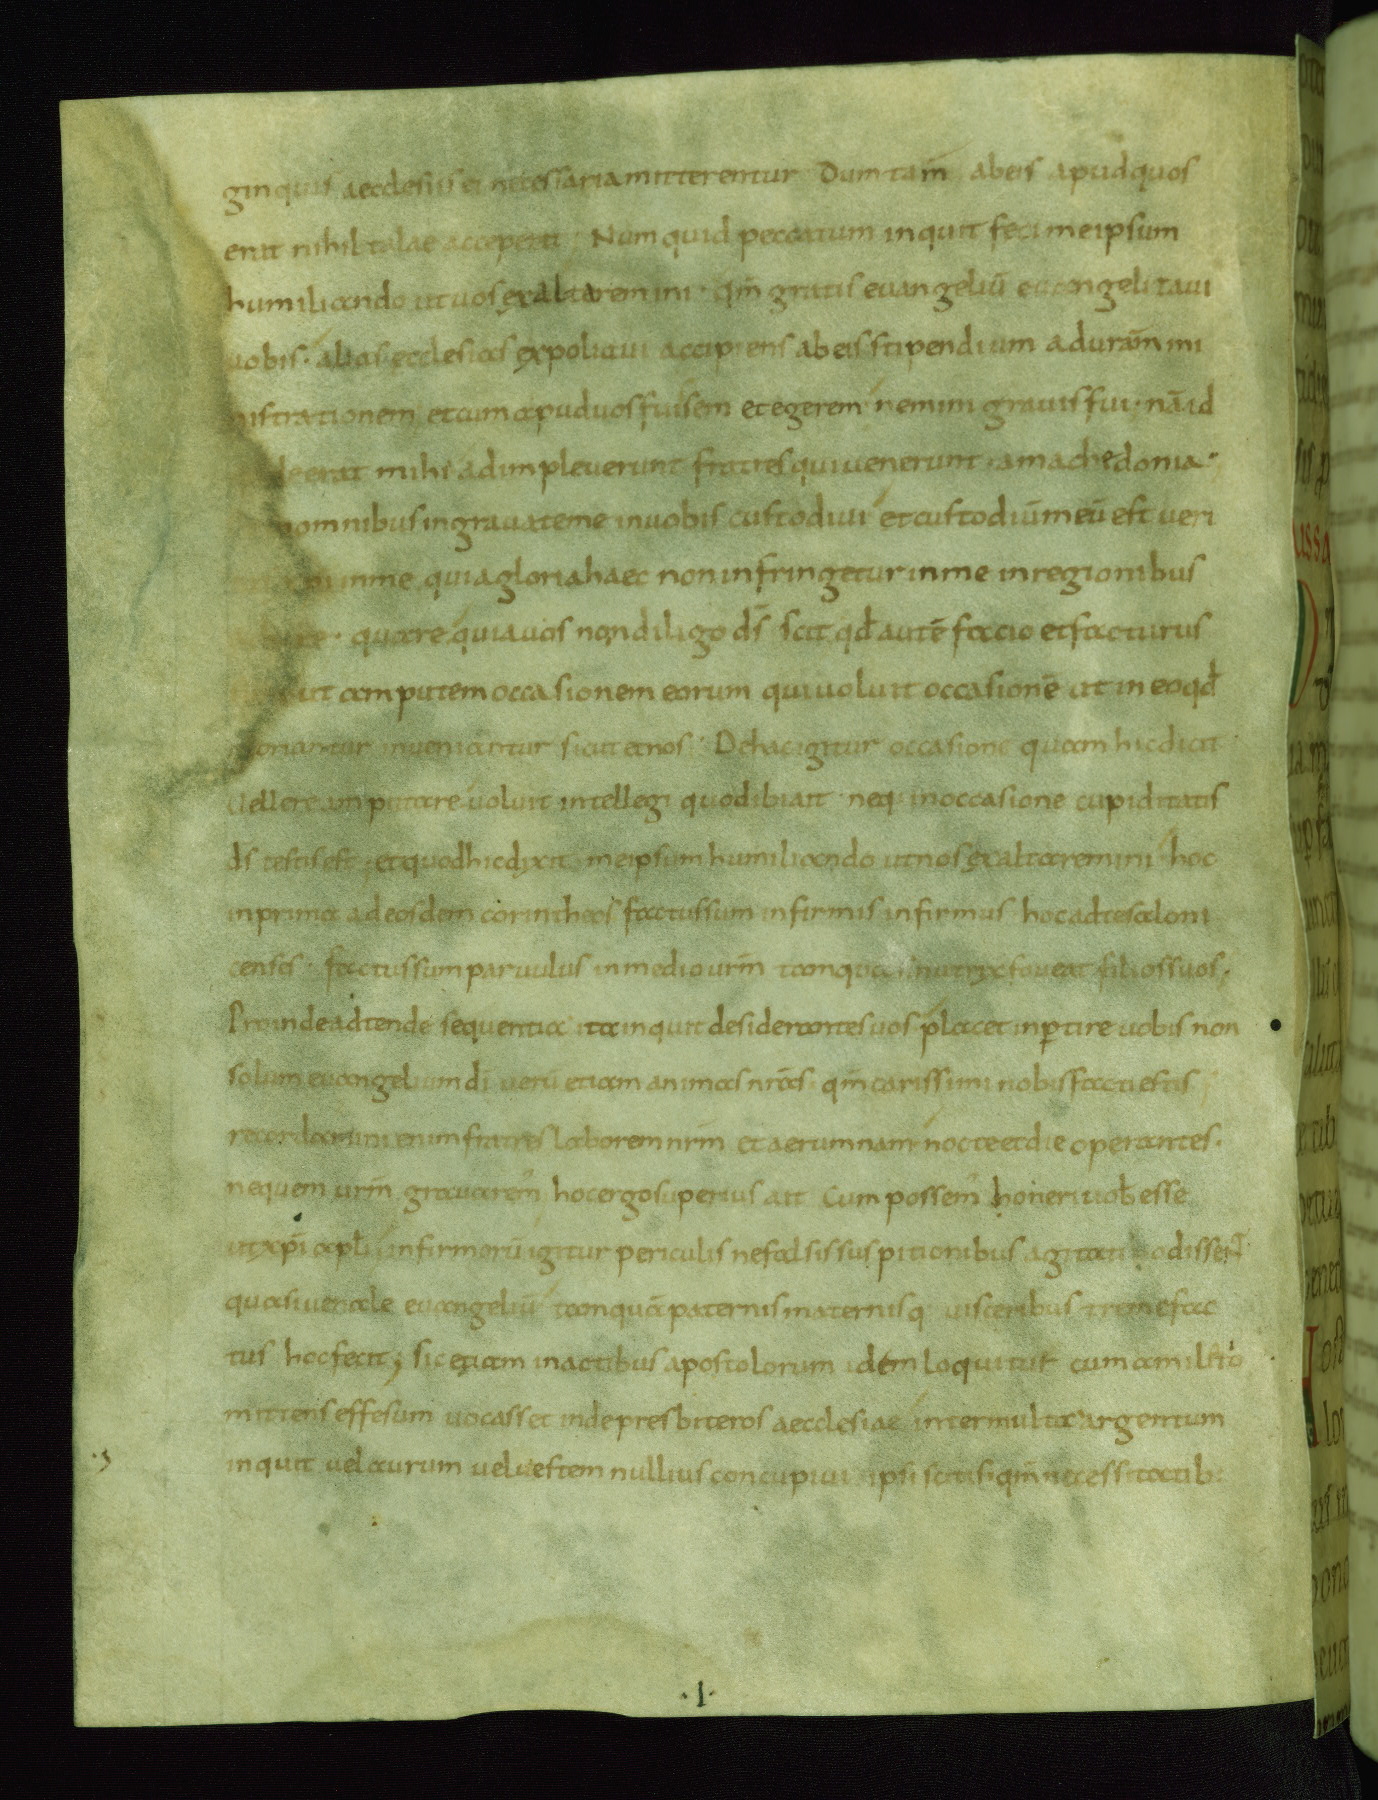 ginquis aecclesiis ei necessaria mitterentur Dum tam̄ ab eis apud quos
erat nihil tale acceperit Numquid peccatum inquit feci me ipsum
humiliando ut vos exaltaremini · qm̄ gratis evangeliū evangelizavi
vobis · alias ecclesias expoliavi accipiens ab eis stipendium ad urām mi
nistrationem et cum apud vos fuissem et egerem nemini gravis fui · nā id
deerat mihi adimpleverunt fratres qui venerunt a machedonia ·
omnibus in gravate me in vobis custodivi et custodiū meū est veri
in me quia gloria haec non infringetur in me in regionibus
quare quia vos non diligo ds̄ scit qd̄ autē facio et facturus
ut amputem occasionem eorum qui volunt occasionē ut in eo qd̄
gloriantur inveniantur sicut et nos · De hac igitur occasione quam hic dicit
vellere amputare voluit intellegi quod ibi ait neq; in occasione cupiditatis
ds̄ testis est ; et quod hic dixit me ipsum humiliando ut nos exaltaremini hoc
in prima ad eosdem corintheos factus sum infirmis infirmus hoc ad tesaloni
censes · factus sum parvulus in medio urm̄ tamquam si nutrix foveat filios suos ·
Proinde adtende sequentia ita inquit desiderantes vos placet inp̄tire vobis non
solum evangelium dī verū etiam animas nrās · qm̄ carissimi nobis facti estis
recordamini enim fratres laborem nrm̄ et aerumnam nocte et die operantes ·
ne quem urm̄ gravarem hoc ergo superius ait Cum possem honeri vob̄ esse
ut xp̄i apl̄i infirmorū igitur periculis ne falsis suspitionibus agitati odissent
quasi venale evangeliū tamquā paternis maternisq; visceribus tremefac
tus hoc fecit ; sic etiam in actibus apostolorum idem loquitur cum a milito
mittens effesum vocasset inde presbiteros aecclesiae inter multa argentum
inquit vel aurum vel vestem nullius concupivi ipsi scitis qm̄ necessitatib;
· I ·